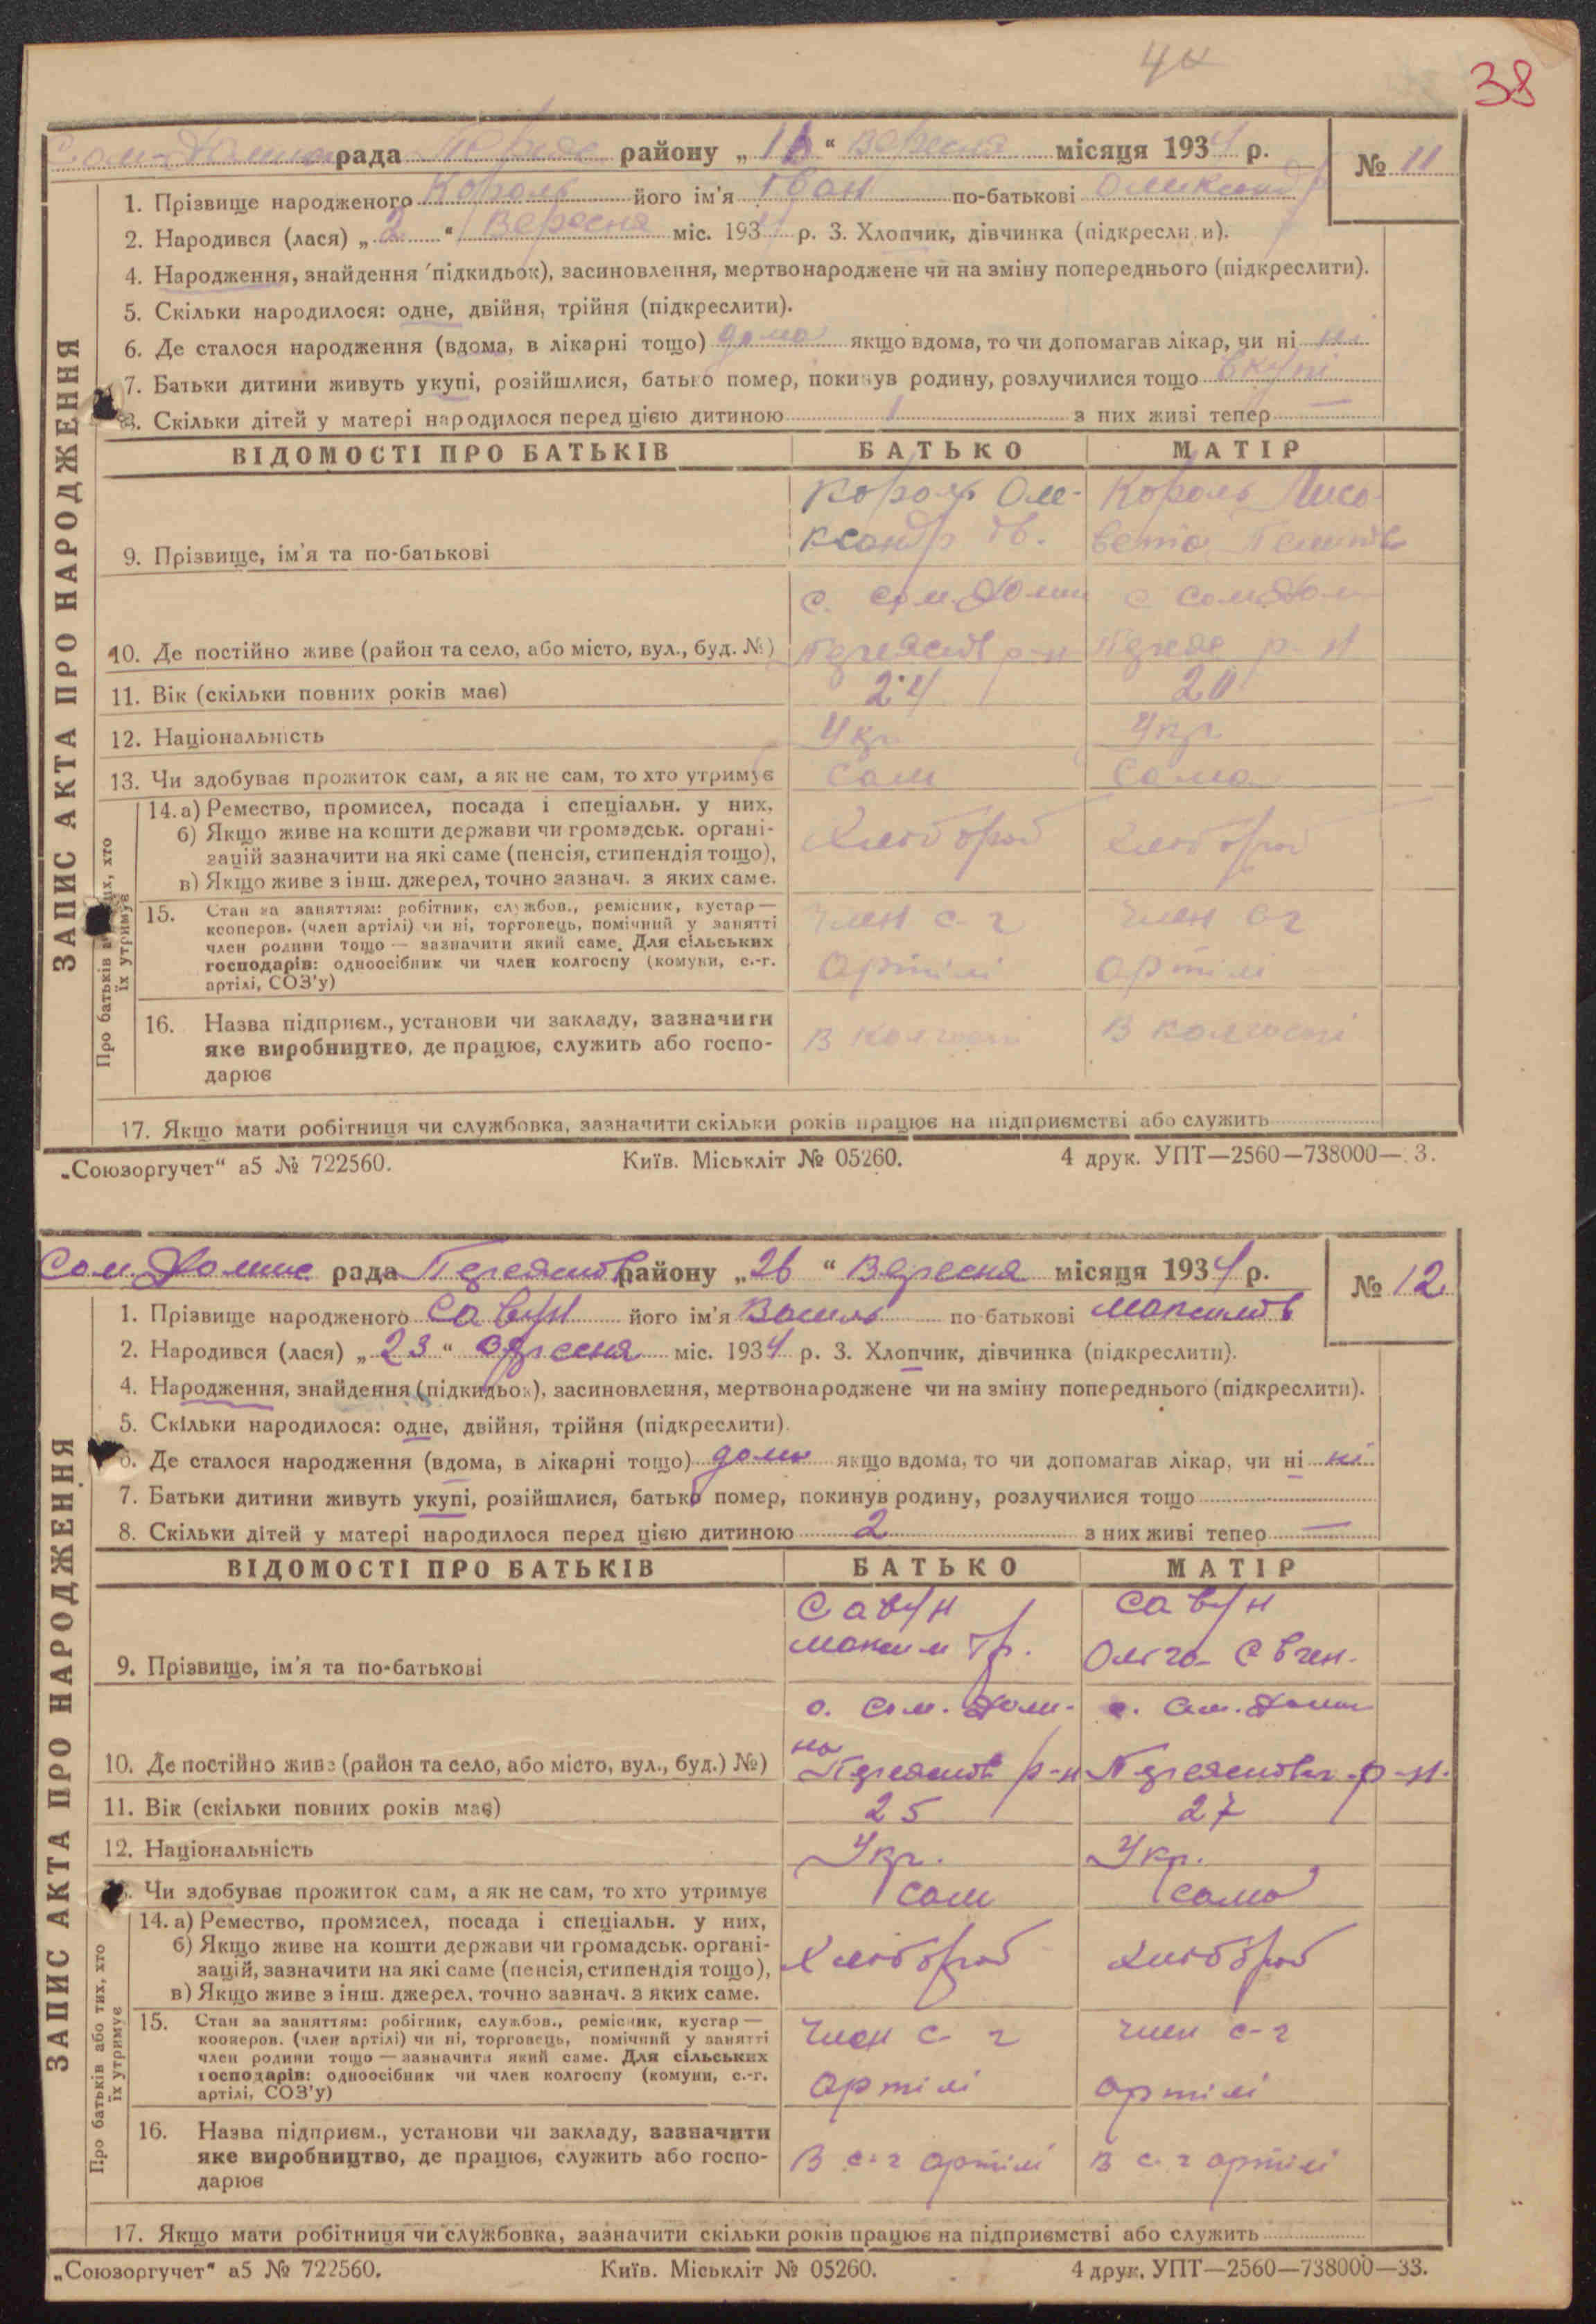 38
рада району „ “ Вересня місяця 1934 р.
№ 11
1. Прізвище народженого Король його ім'я Іван по-батькові Олександр
2. Народився (лася) „ 2 “ Вересня міс. 1934 р. 3. Хлопчик, дівчинка (підкреслити).
4. Народження, знайдення (підкидьок), засиновлення, мертвонароджене чи на зміну попереднього (підкреслити).
5. Скільки народилося: одне, двійня, трійня (підкреслити).
6. Де сталося народження (вдома, в лікарні тощо) дома якщо вдома, то чи допомагав лікар, чи ні ні
7. Батьки дитини живуть укупі, розійшлися, батько помер, покинув родину, розлучилися тощо вкупі
8. Скільки дітей у матері народилося перед цією дитиною 1 з них живі тепер —
ЗАПИС АКТА ПРО НАРОДЖЕННЯ
ВІДОМОСТІ ПРО БАТЬКІВ БАТЬКО МАТІР
Король Оле- Король Лиса-
ксандр Ів. вета
9. Прізвище, ім'я та по-батькові
с. Сом. Долин с Сом. Дол
10. Де постійно живе (район та село, або місто, вул., буд. №) р-н р-н
11. Вік (скільки повних років має) 24
12. Національність Укр. Укр.
13. Чи здобував прожиток сам, а як не сам, то хто утримує сам сама
Про батьків або тих, хто їх утримує
14. а) Ремество, промисел, посада і спеціальн. у них,
б) Якщо живе на кошти держави чи громадськ. органі- Хлібороб Хлібороб
зацій зазначити на які саме (пенсія, стипендія тощо),
в) Якщо живе з інш. джерел, точно зазнач. з яких саме.
15. Стан за заняттям: робітник, службов., ремісник, кустар—
кооперов. (член артілі) чи ні, торговець, помічний у занятті член с-г член с-г
член родини тощо — зазначити який саме. Для сільських
господарів: одноосібник чи член колгоспу (комуни, с.-г. артілі артілі
артілі, СОЗ'у)
16. Назва підприєм., установи чи закладу, зазначити
яке виробництво, де працює, служить або госпо- В колгоспі В колгоспі
дарює
17. Якщо мати робітниця чи службовка, зазначити скільки років працює на підприємстві або служить
„Союзоргучет“ а5 № 722560. Київ. Міськліт № 05260. 4 друк. УПТ—2560—738000— 3.
Сом. Долинс рада району „ 26 “ Вересня місяця 1934 р.
№ 12
1. Прізвище народженого Савун його ім'я Василь по-батькові Максимів
2. Народився (лася) „ 23 “ вересня міс. 1934 р. 3. Хлопчик, дівчинка (підкреслити).
4. Народження, знайдення (підкидьок), засиновлення, мертвонароджене чи на зміну попереднього (підкреслити).
5. Скільки народилося: одне, двійня, трійня (підкреслити).
6. Де сталося народження (вдома, в лікарні тощо) дома якщо вдома, то чи допомагав лікар, чи ні ні
7. Батьки дитини живуть укупі, розійшлися, батько помер, покинув родину, розлучилися тощо
8. Скільки дітей у матері народилося перед цією дитиною 2 з них живі тепер —
ЗАПИС АКТА ПРО НАРОДЖЕННЯ
ВІДОМОСТІ ПРО БАТЬКІВ БАТЬКО МАТІР
Савун Савун
Максим Гр. Ольга Євген.
9. Прізвище, ім'я та по-батькові
с. Сом. Доли- с. Сом. Долин
на
10. Де постійно живе (район та село, або місто, вул., буд.) №) р-н р-н.
11. Вік (скільки повних років має) 25 27
12. Національність Укр. Укр.
Чи здобував прожиток сам, а як не сам, то хто утримує сам сама
Про батьків або тих, хто їх утримує
14. а) Ремество, промисел, посада і спеціальн. у них,
б) Якщо живе на кошти держави чи громадськ. органі- Хлібороб Хлібороб
зацій, зазначити на які саме (пенсія, стипендія тощо),
в) Якщо живе з інш. джерел, точно зазнач. з яких саме.
15. Стан за заняттям: робітник, службов., ремісник, кустар—
кооперов. (член артілі) чи ні, торговець, помічний у занятті член с-г член с-г
член родини тощо — зазначити який саме. Для сільських
господарів: одноосібник чи член колгоспу (комуни, с.-г. артілі артілі
артілі, СОЗ'у)
16. Назва підприєм., установи чи закладу, зазначити
яке виробництво, де працює, служить або госпо- В с-г артілі В с-г артілі
дарює
17. Якщо мати робітниця чи службовка, зазначити скільки років працює на підприємстві або служить
„Союзоргучет“ а5 № 722560. Київ. Міськліт № 05260. 4 друк. УПТ—2560—738000—33.